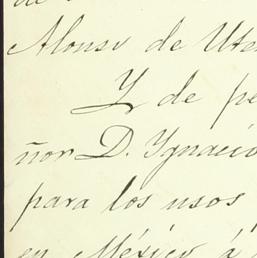 Alonso de Ute
Y de pe
ñor D. Ignacio
para los usos
en México á